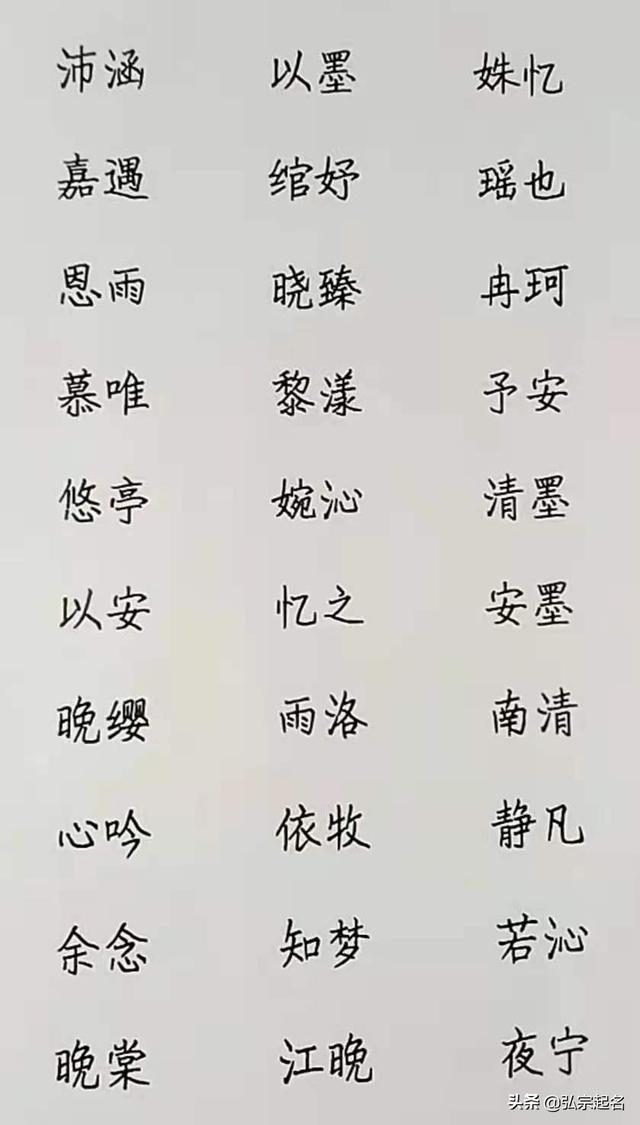 沛涵 以墨 姝忆
嘉遇 绾妤 瑶也
恩雨 晓臻 冉珂
慕唯 黎漾 予安
悠亭 婉沁 清墨
以安 忆之 安墨
晚缨 雨洛 南清
心吟 依牧 静凡
余念 知梦 若沁
晚棠 江晚 夜宁
头条 @弘宗起名